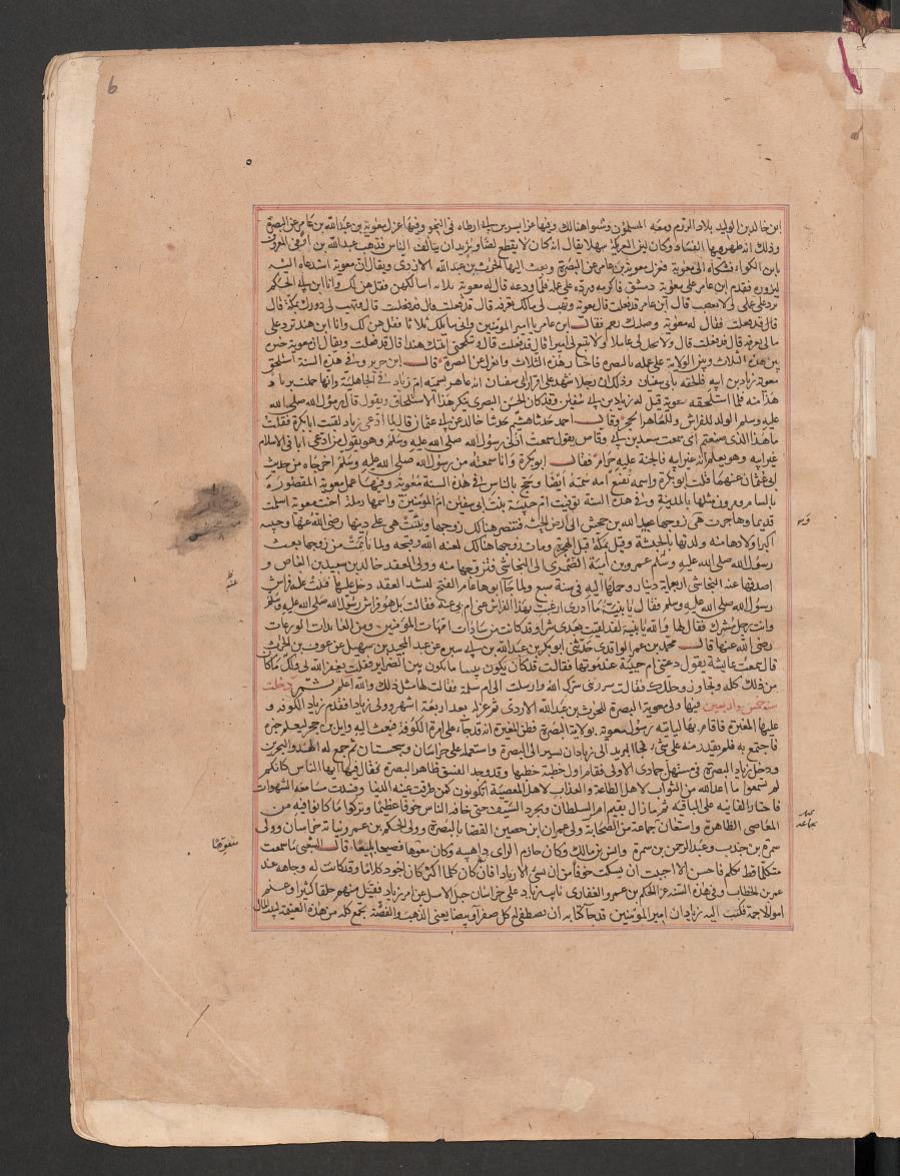 6
ابن خالد بن الوليد بلاد الروم ومعه المسلمون وشتوا هنالك وفيها غزا بسر بن ابى ارطاه فى البحر وفيها عزل معوية بن عبدالله بن عامر عن البصرة
وذلك انه ظهر بها الفساد وكان لين العريكة سهلا يقال انه كان لا يقطع لصا ويريد ان يتألف الناس فذهب عبدالله بن ابى اوفى المعروف
بابن الكواء فشكاه الى معوية فعزل معوية بن عامر عن البصرة وبعث اليها الحرث بن عبدالله الازدى ويقال ان معوية استدعاه اليه
ليزوره فقدم ابن عامر على معوية دمشق فاكرمه ورده على عمله فلما ودعه قال له معوية ثلاث اسالكهن فقل هن لك وانا ابن ام الحكم
ترد على عملى ولا تغضب قال ابن عامر قد فعلت قال معوية وتهب لى مالك بعرفه قال قد فعلت قال وتهب لى دورك بمكة قال
قال قد فعلت فقال له معوية وصلتك رحم فقال ابن عامر يا امير المؤمنين وانى سائلك ثلاثا فقل هن لك وانا ابن هند ترد على
مالى بعرفه قال قد فعلت قال ولا تحاسب لى عاملا ولا تتبع لى اميرا قال قد فعلت قال وتنكحنى ابنتك هندا قال قد فعلت ويقال ان معوية خيره
بين هذه الثلاث وبين الولاية على عمله بالبصرة فاختار هذه الثلاث وانعزل عن البصرة قال ابن جرير وفى هذه السنة استلحق
معوية زياد بن ابيه فالحقه بابى سفيان وذلك ان رجلا شهد على اقرار ابى سفيان انه عاهر بسمية ام زياد فى الجاهلية وانها حملت بزياد
هذا منه فلما استلحقه معوية قيل له زياد بن ابى سفين وقد كان الحسن البصرى ينكر هذا الاستلحاق ويقول قال رسول الله صلى الله
عليه وسلم الولد للفراش وللعاهر الحجر وقال احمد حدثنا هشيم حدثنا خالد عن ابى عثمان قال لما ادعى زياد لقيت ابا بكرة فقلت
ما هذا الذى صنعتم انى سمعت سعد بن ابى وقاص يقول سمعت اذنى رسول الله صلى الله عليه وسلم وهو يقول من ادعى ابا فى الاسلام
غير ابيه وهو يعلم انه غير ابيه فالجنة عليه حرام فقال ابو بكرة وانا سمعته من رسول الله صلى الله عليه وسلم اخرجاه من حديث
ابى عثمان عنهما قلت ابو بكرة واسمه نفيع امه سمية ايضا وحج بالناس فى هذه السنة معوية وفيها عمل معوية المقصورة
بالشام ومرون مثلها بالمدينة وفى هذه السنة توفيت ام حبيبة بنت ابى سفين ام المؤمنين واسمها رملة اخت معوية اسلمت
قديما وهاجرت هى وزوجها عبيد الله بن جحش الى ارض الحبشة فتنصر هنالك زوجها وثبتت هى على دينها رضى الله عنها وحبيبه
اكبر اولادها منه ولدتها بالحبشة وقيل بمكة قبل الهجرة ومات زوجها هنالك لعنه الله وقبحه ولما تأيمت من زوجها بعث
رسول الله صلى الله عليه وسلم عمرو بن امية الضمرى الى النجاشى فتزوجها منه وولى العقد خالد بن سعيد بن العاص و
اصدقها عنه النجاشى اربعماية دينار وحملها اليه فى سنة سبع ولما جاء ابوها عام الفتح ليشد العقد دخل عليها فثنت عنه فراش
رسول الله صلى الله عليه وسلم فقال يا بنية ما ادرى ارغبت بهذا الفراش عنى ام بى عنه فقالت بل هو فراش رسول الله صلى الله عليه وسلم
وانت رجل مشرك فقال لها والله يا بنية لقد لقيت بعدى شرا وقد كانت من سادات امهات المؤمنين ومن العابدات الورعات
رضى الله عنها قال محمد بن عمر الواقدى حدثنى ابو بكر بن عبدالله بن ابى سبره عن عبد المجيد بن سهيل عن عوف بن الحرث
قال سمعت عايشة يقول دعتنى ام حبيبة عند موتها فقالت قد كان يكون بيننا ما يكون بين الضراير فقلت يغفر الله لى ولك ما كان
من ذلك كله وتجاوز وحللك فقالت سررتنى سرك الله وارسلت الى ام سلمة فقالت لها مثل ذلك والله اعلم ثم دخلت
سنة خمس واربعين فيها ولى معوية البصرة للحرث بن عبدالله الازدى ثم عزله بعد اربعة اشهر وولى زيادا فقدم زياد الكوفه و
عليها المغيرة فاقام بها لياتيه رسول معوية بولاية البصرة فظن المغيرة انه قد جاء على امرة الكوفة فبعث اليه وايل بن حجر ليعلم خبره
فاجتمع به فلم يقدر منه على شى فجاء البريد الى زياد ان يسير الى البصرة واستعمله على خراسان وسجستان ثم جمع له الهند والبحرين
ودخل زياد البصرة فى مستهل جمادى الاولى فقام اول خطبة خطبها وقد وجد الفسق ظاهر البصرة فقال فيها ايها الناس كانكم
لم تسمعوا ما اعد الله من الثواب لاهل الطاعة والعذاب لاهل المعصية اتكونون كمن طرفت عينه الدنيا وسدت مسامعه الشهوات
فاختار الفانيه على الباقيه ثم ما زال يقيم امر السلطان ويجرد السيف حتى خافه الناس خوفا عظيما وتركوا ما كانوا فيه من
المعاصى الظاهرة واستعان بجماعة من الصحابة وولى عمران بن حصين القضا بالبصرة وولى الحكم بن عمرو نيابة خراسان وولى
سمرة بن جندب وعبد الرحمن بن سمرة وانس بن مالك وكان حازم الراى داهيه وكان مفوها فصيحا بليغا قال الشعبى ما سمعت
متكلما قط تكلم فاحسن الا احببت ان يسكت خوفا من ان يسى الا زيادا فانه كان كلما اكثر كان اجود كلاما وقد كانت له وجاهة عند
عمر بن الخطاب وفى هذه السنه غزا الحكم بن عمرو الغفارى نايب زياد على خراسان جبل الاسل عن امر زياد فقتل منهم خلقا كثيرا وغنم
اموالا جمة فكتب اليه زياد ان امير المؤمنين قد جاء كتابه ان يصطفى له كل صفرا وبيضا يعنى الذهب والفضة يجمع كله من هذه الغنيمة لبيت المال